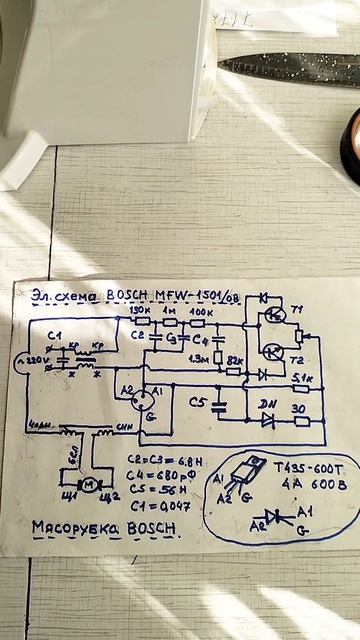 Эл. схема BOSCH MFW-1501/08
130к 1м 100к T1
C1 кр кр C2 C3 C4
~220V 1.3м 82к T2
ж ж
A2 A1 5,1к
G C5 DN 30
чёрн син
бел
C2=C3=6.8Н
C4=680рФ
C5=56Н
C1=0,047
M
Щ1 Щ2
A1
A2 G
T435-600T
4А 600В
A1
A2 G
МЯСОРУБКА BOSCH.